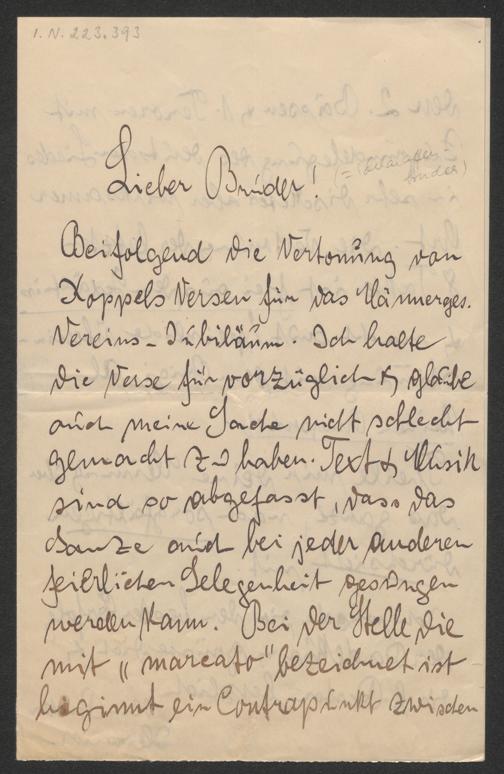 I.N. 223.393
Lieber Bruder!
Beifolgend die Vertonung von
Koppels Versen für das Männerges.
Vereins-Jubiläum. Ich halte
die Verse für vorzüglich & glaube
auch meine Sache nicht schlecht
gemacht zu haben. Text & Musik
sind so abgefasst, dass das
Ganze auch bei jeder anderen
feierlichen Gelegenheit gesungen
werden kann. Bei der Stelle die
mit „marcato" bezeichnet ist
beginnt ein Contrapunkt zwischen